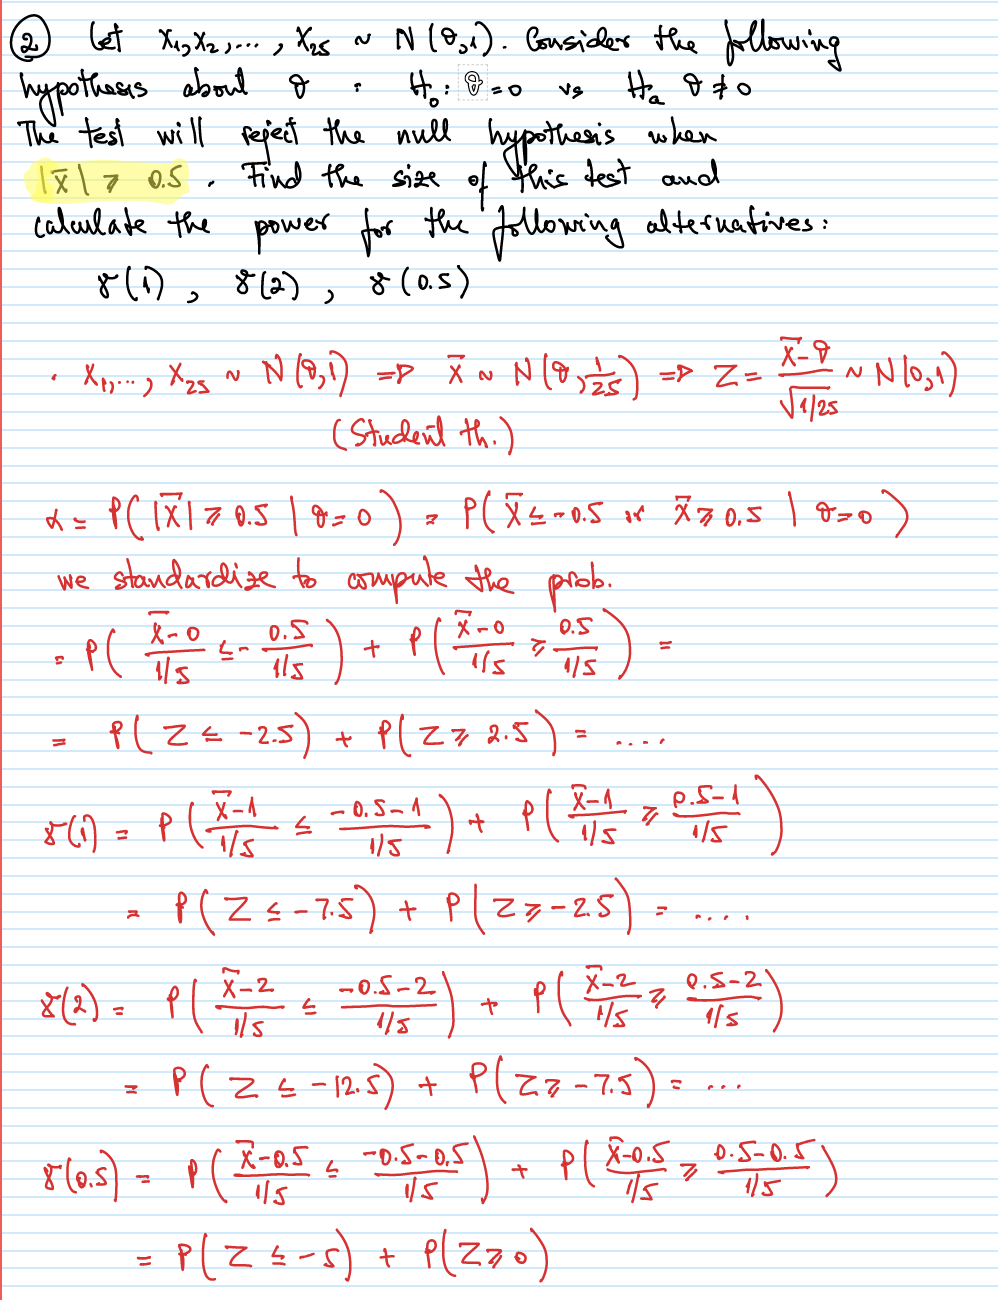 ② Let X₁, X₂, ..., X₂₅ ~ N(θ,1). Consider the following
hypothesis about θ : H₀: θ=0 vs Hₐ θ≠0
The test will reject the null hypothesis when
|X̅| ⩾ 0.5. Find the size of this test and
calculate the power for the following alternatives:
γ(1), γ(2), γ(0.5)
· X₁,..., X₂₅ ~ N(θ,1) => X̅ ~ N(θ, 1/25) => Z = (X̅-θ)/√(1/25) ~ N(0,1)
(Student th.)
α = P(|X̅| ⩾ 0.5 | θ=0) = P(X̅ ≤ -0.5 or X̅ ⩾ 0.5 | θ=0)
we standardize to compute the prob.
= P((X̅-0)/(1/5) ≤ -0.5/(1/5)) + P((X̅-0)/(1/5) ⩾ 0.5/(1/5)) =
= P(Z ≤ -2.5) + P(Z ⩾ 2.5) = ....
γ(1) = P((X̅-1)/(1/5) ≤ (-0.5-1)/(1/5)) + P((X̅-1)/(1/5) ⩾ (0.5-1)/(1/5))
= P(Z ≤ -7.5) + P(Z ⩾ -2.5) = ....
γ(2) = P((X̅-2)/(1/5) ≤ (-0.5-2)/(1/5)) + P((X̅-2)/(1/5) ⩾ (0.5-2)/(1/5))
= P(Z ≤ -12.5) + P(Z ⩾ -7.5) = ...
γ(0.5) = P((X̅-0.5)/(1/5) ≤ (-0.5-0.5)/(1/5)) + P((X̅-0.5)/(1/5) ⩾ (0.5-0.5)/(1/5))
= P(Z ≤ -5) + P(Z ⩾ 0)